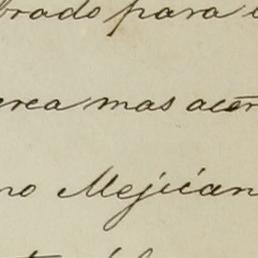 brado para
crea mas acer
no Mejican